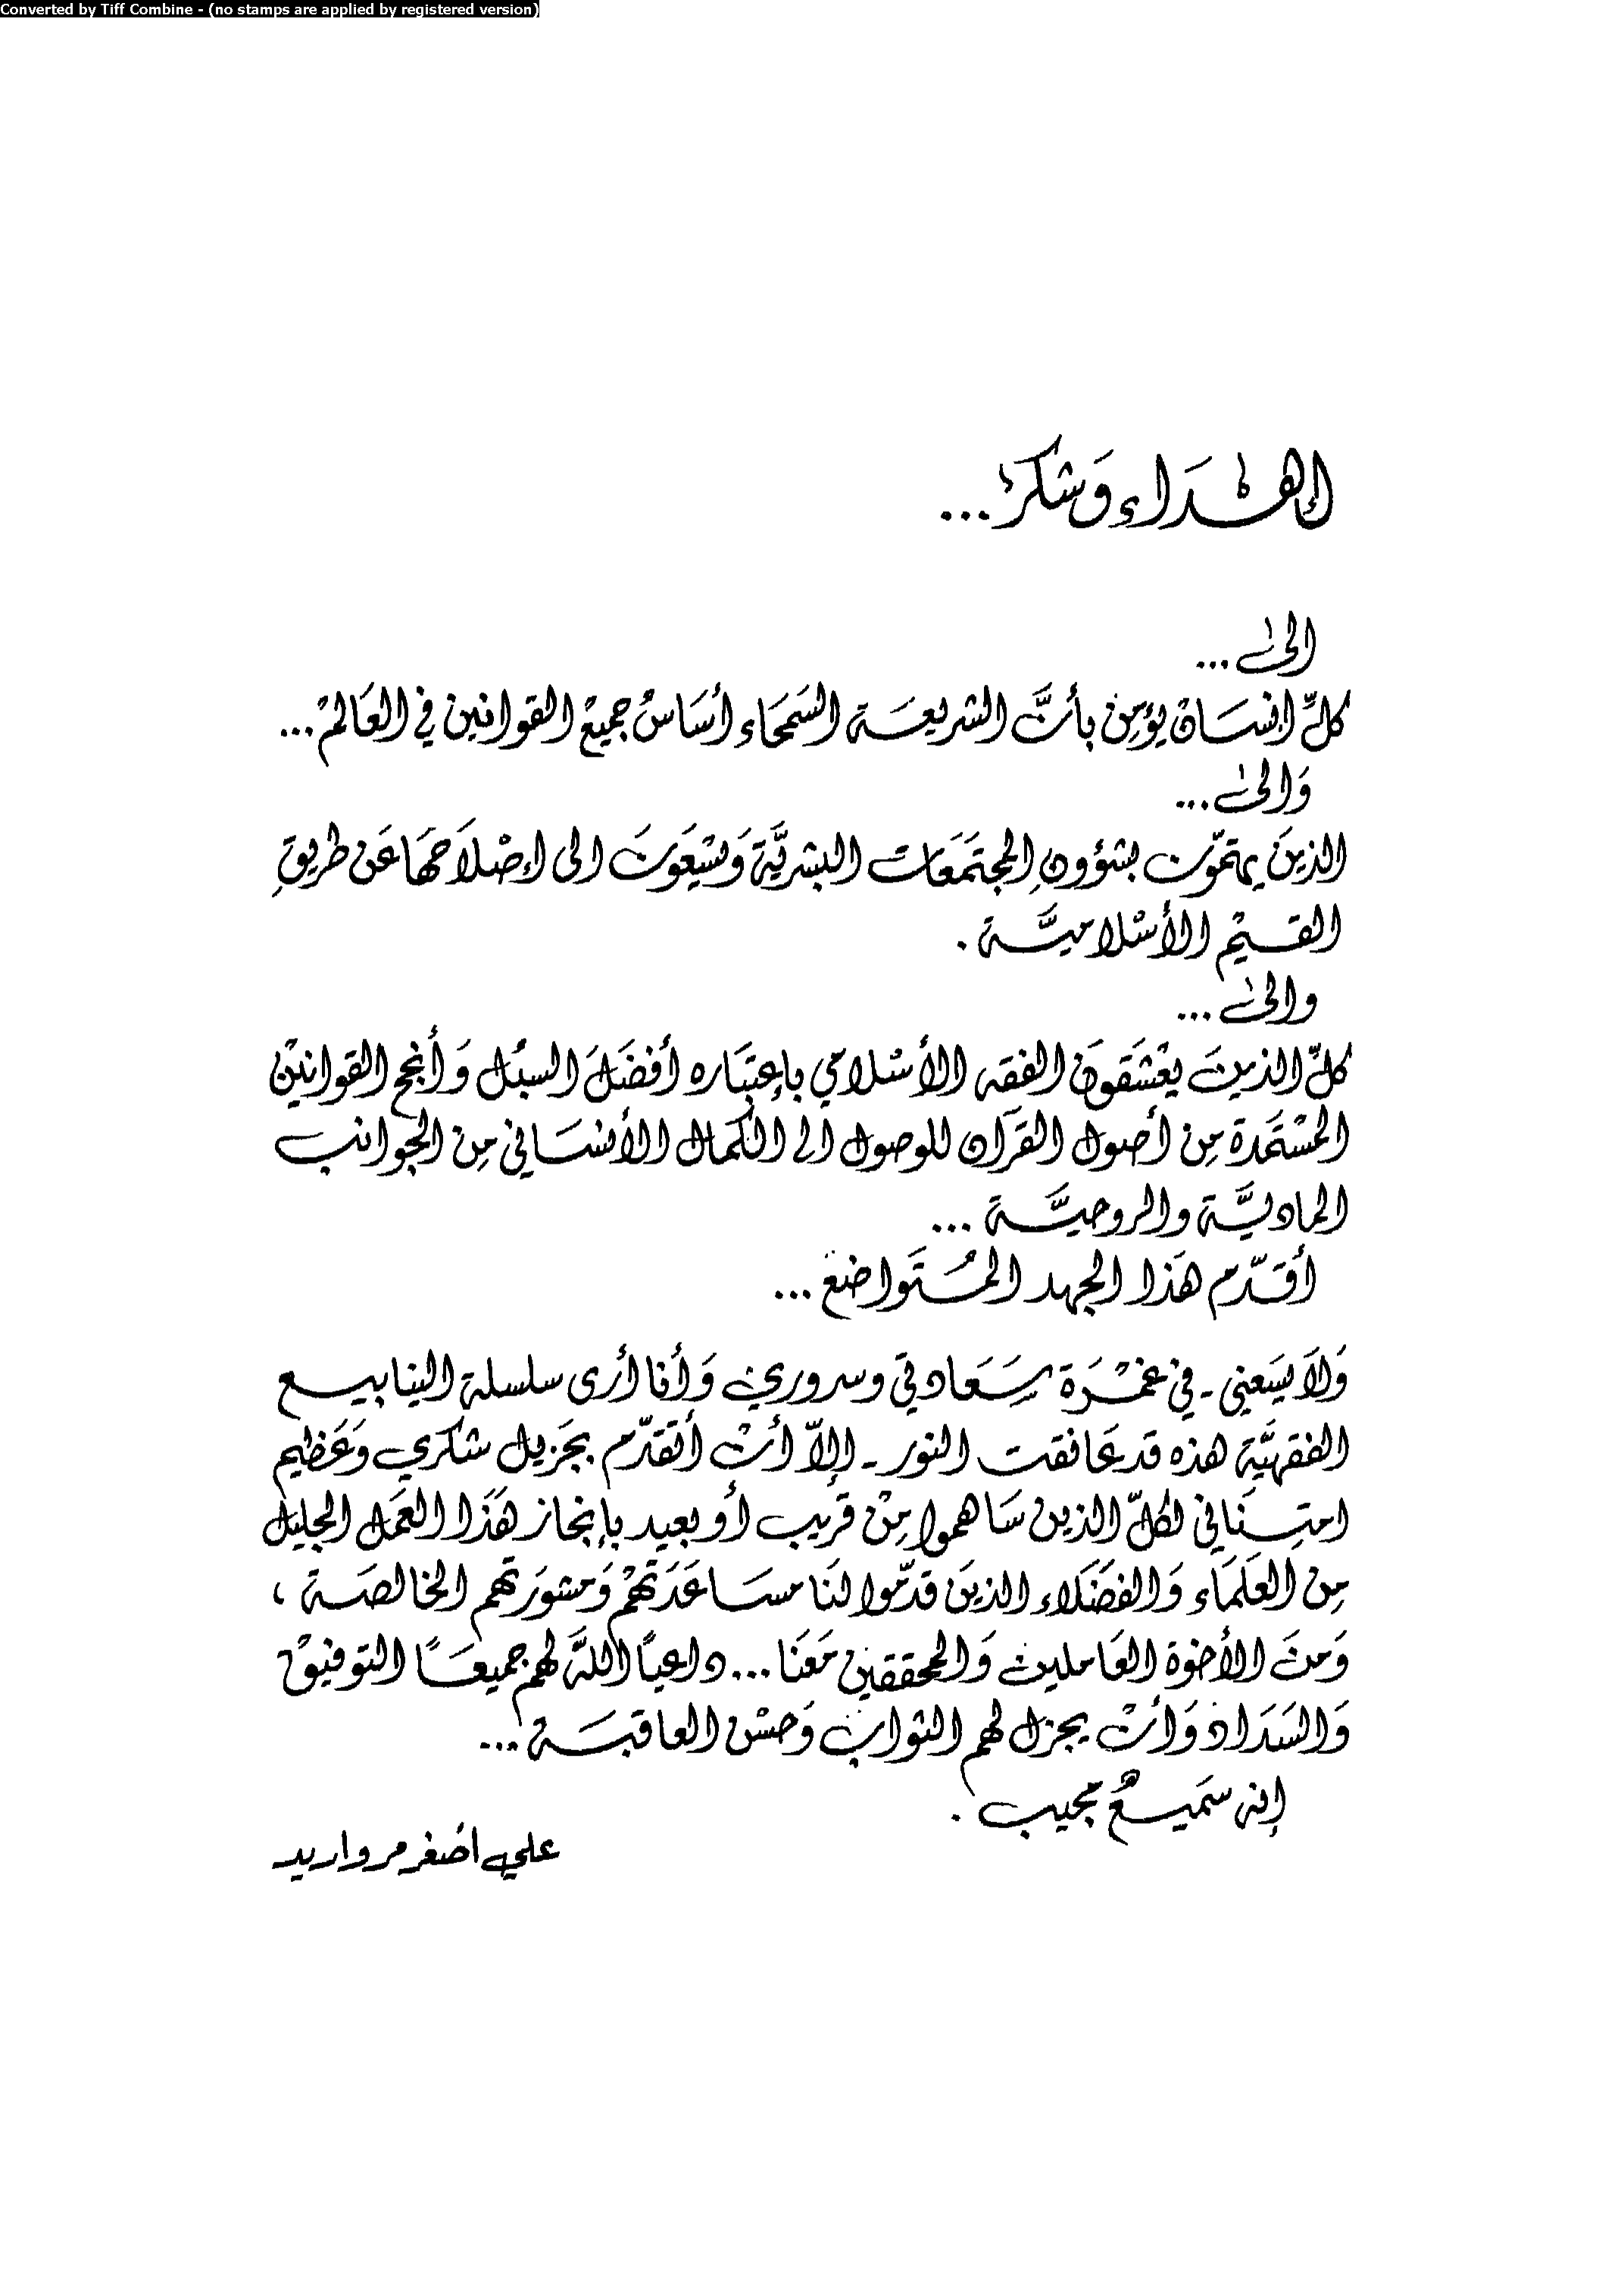 Converted by Tiff Combine - (no stamps are applied by registered version)
إهداء وشكر ...
الى ...
كلّ انسان يؤمن بأنَّ الشريعة السَمحَاء أسَاسُ جميع القوانين في العَالم ...
وَالى ...
الذينَ يهتمّون بشؤونِ المجتمَعَات البشريَّة وَيسْعَونَ الى إصْلاَحهَا عَن طريقِ
القيم الأسْلاميَّة .
والى ...
كلّ الذينَ يعْشَقونَ الفقه الأسْلامي بإعتبَاره أفضَلَ السبُل وَأنجح القوانين
المسْتمَدة مِن أصول القرآن للوصول الى الكمال الأنسَاني مِن الجوانب
الماديَّة والروحيَّة ...
أقدّم هَذا الجهد المُتَواضع ...
وَلاَ يسَعني - في غمْرَة سَعَادتي وسروري وَأنا أرى سلسلة الينابيع
الفقهيَّة هذه قد عَانقت النور - إلاّ أنْ أتقدّم بجَزيل شكري وَعَظيم
امتِنَاني لكلّ الذين سَاهموا مِنْ قريب أو بعيد بإنجاز هَذا العَمل الجليل
مِن العلَمَاء وَالفضَلاء الذينَ قدّموا لنَا مسَاعَدَتهمْ وَمشورَتهم الخالصَة ،
وَمنَ الأخوَة العَاملين وَالمحققين مَعَنا ... داعياً اللهَ لهم جميعاً التوفيق
وَالسَدَاد وَأنْ يجزل لهم الثواب وَحسْن العاقبَة ...
إنه سَميعٌ مجيب .
علي اصغر مرواريد